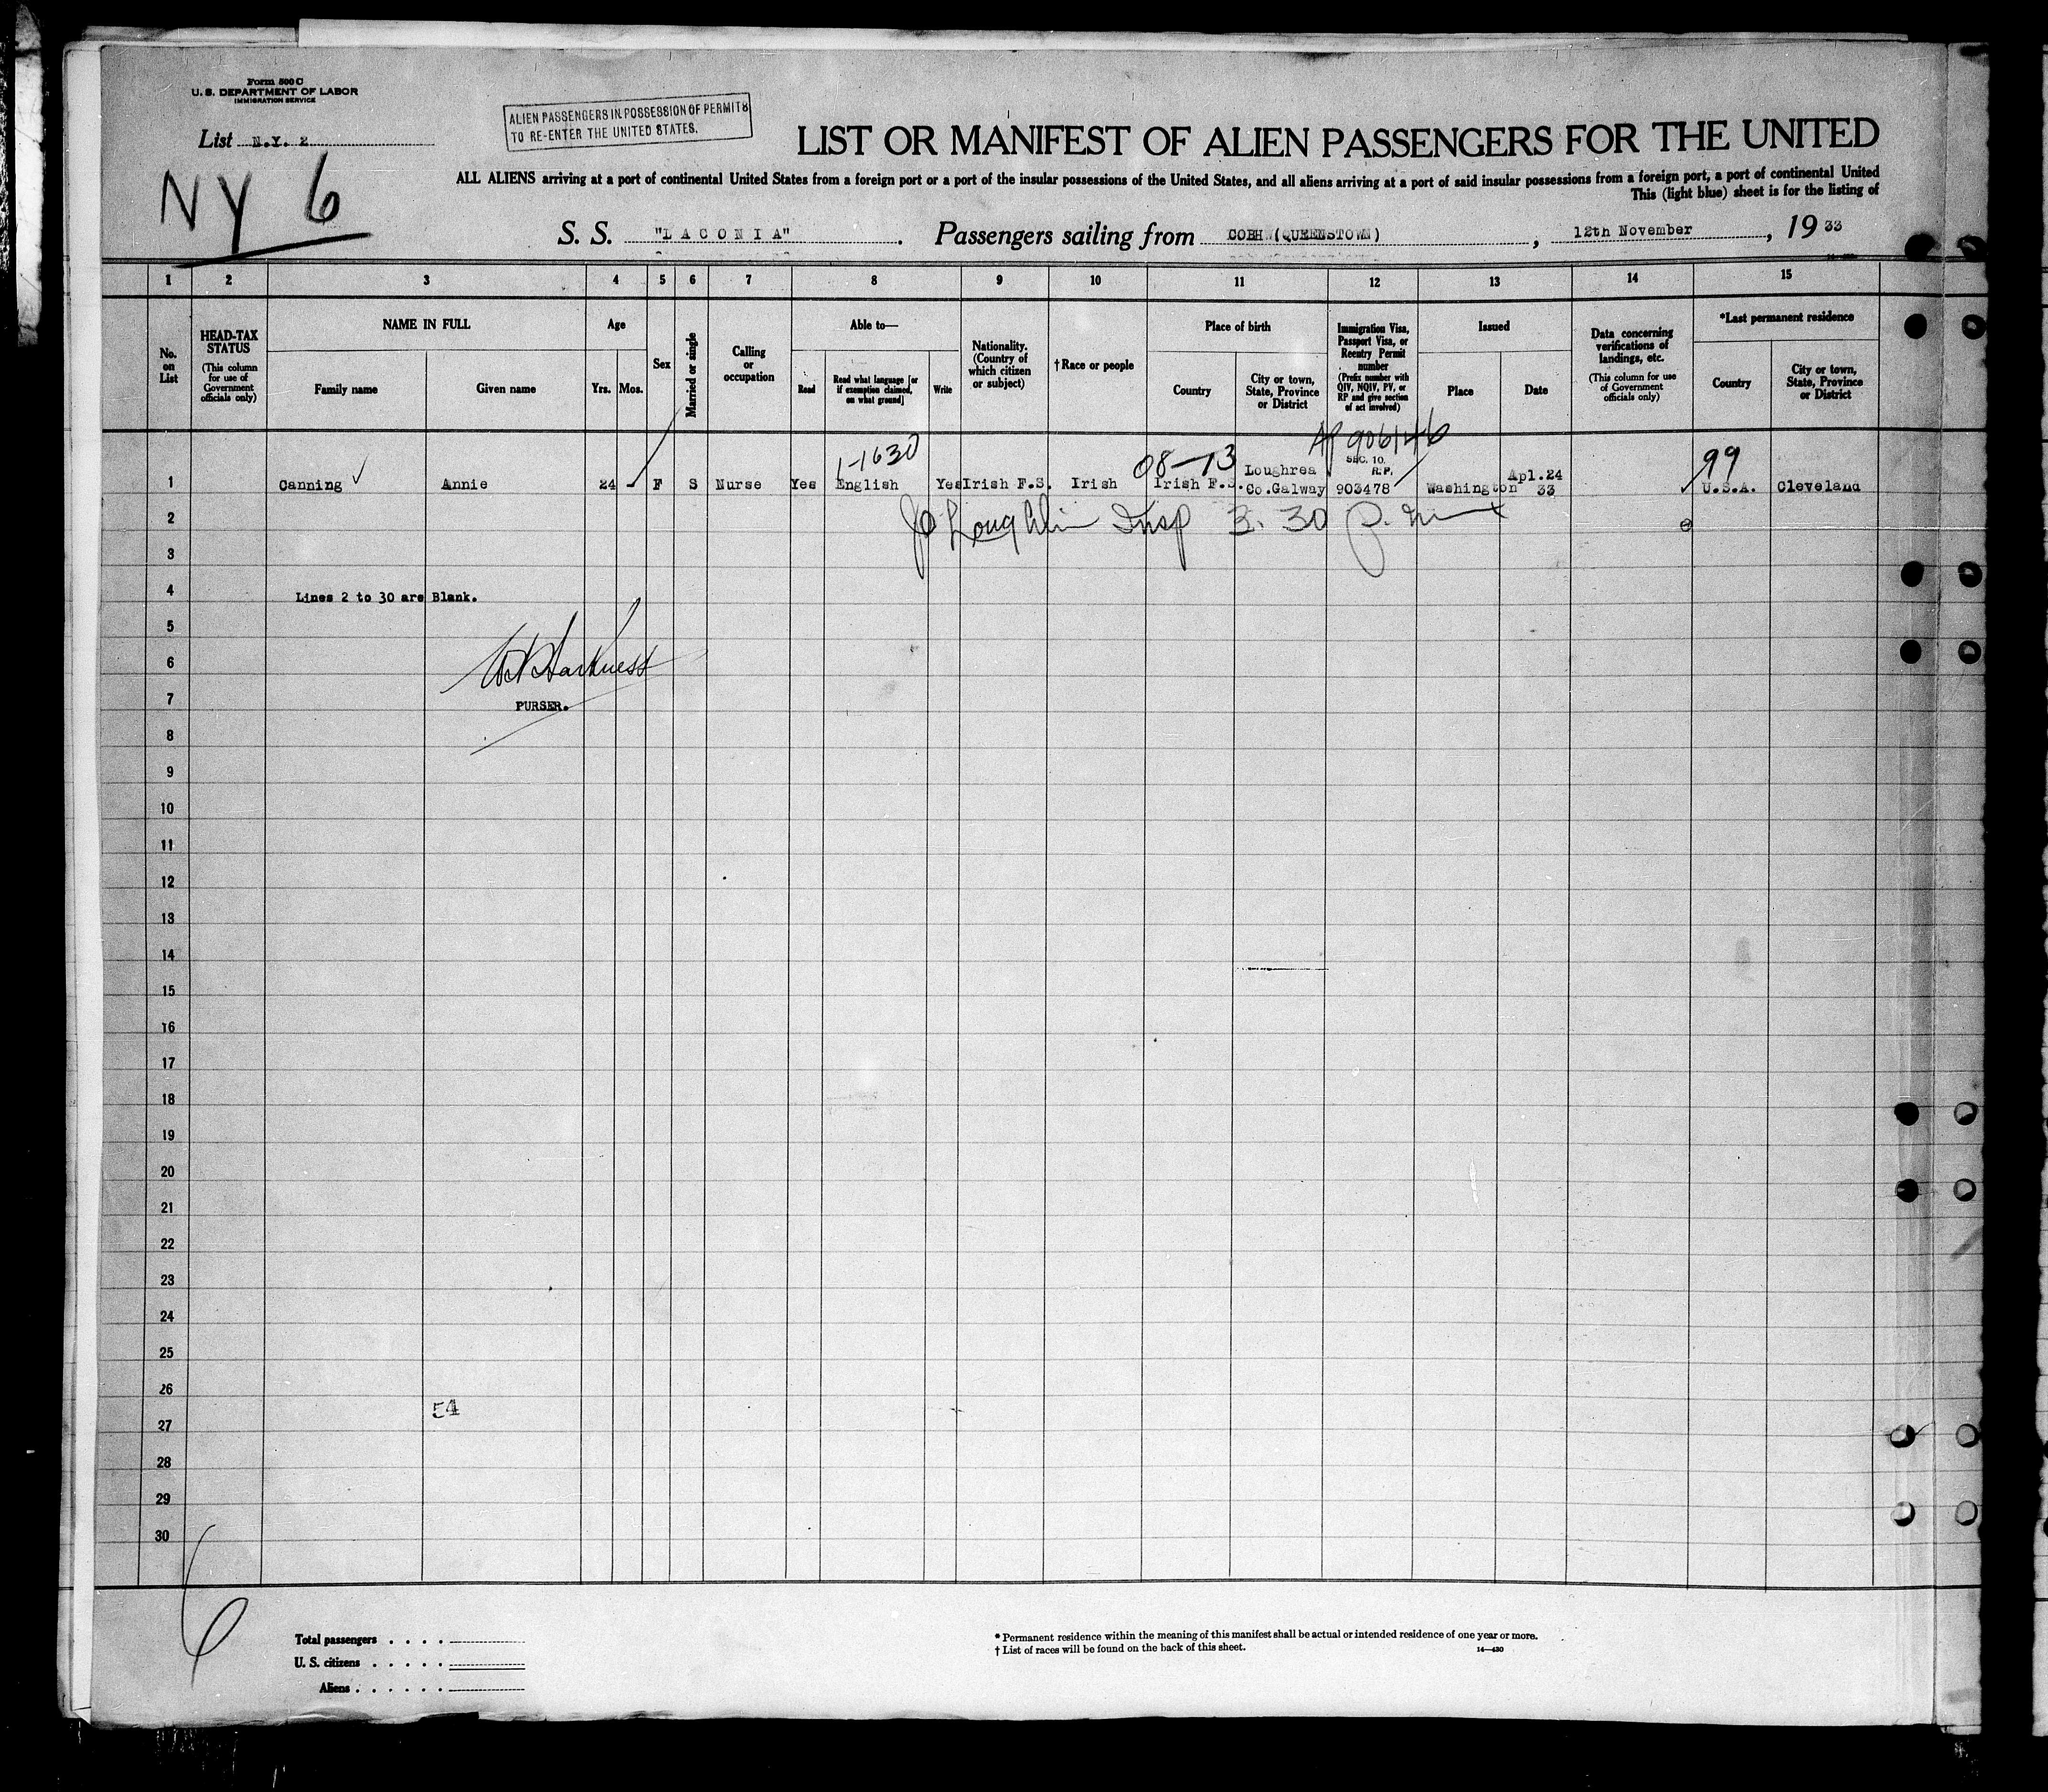 Form 500 C
U. S. DEPARTMENT OF LABOR
IMMIGRATION SERVICE
List N.Y. 2
ALIEN PASSENGERS IN POSSESSION OF PERMITS
TO RE-ENTER THE UNITED STATES.
NY 6
LIST OR MANIFEST OF ALIEN PASSENGERS FOR THE UNITED
ALL ALIENS arriving at a port of continental United States from a foreign port or a port of the insular possessions of the United States, and all aliens arriving at a port of said insular possessions from a foreign port, a port of continental United
This (light blue) sheet is for the listing of
S. S. "L A C O N I A". Passengers sailing from COBH (QUEENSTOWN), 12th November, 19 33
1 2 3 4 5 6 7 8 9 10 11 12 13 14 15
No.
on
List
HEAD-TAX
STATUS
(This column
for use of
Government
officials only)
NAME IN FULL
Family name Given name
Age
Yrs. Mos.
Sex
Married or single
Calling
or
occupation
Able to—
Read
Read what language [or
if exemption claimed,
on what ground]
Write
Nationality.
(Country of
which citizen
or subject)
† Race or people
Place of birth
Country
City or town,
State, Province
or District
Immigration Visa,
Passport Visa, or
Reentry Permit
number
(Prefix number with
QIV, NQIV, PV, or
RP and give section
of act involved)
Issued
Place Date
Data concerning
verifications of
landings, etc.
(This column for use
of Government
officials only)
*Last permanent residence
Country
City or town,
State, Province
or District
906146
1-1630 08-13 99
SEC. 10.
R.P.
Loughrea Apl.24
1 Canning Annie 24 - F S Nurse Yes English Yes Irish F.S. Irish Irish F.S. Co.Galway 903478 Washington 33 U.S.A. Cleveland
2 Loughlin Insp 3.30 p.m
3
4 Lines 2 to 30 are Blank.
5
6 Harkness
7 PURSER.
8
9
10
11
12
13
14
15
16
17
18
19
20
21
22
23
24
25
26
54
27
28
29
30
6
Total passengers . . . .
U. S. citizens . . . . .
Aliens . . . . . .
* Permanent residence within the meaning of this manifest shall be actual or intended residence of one year or more.
† List of races will be found on the back of this sheet.
14—430